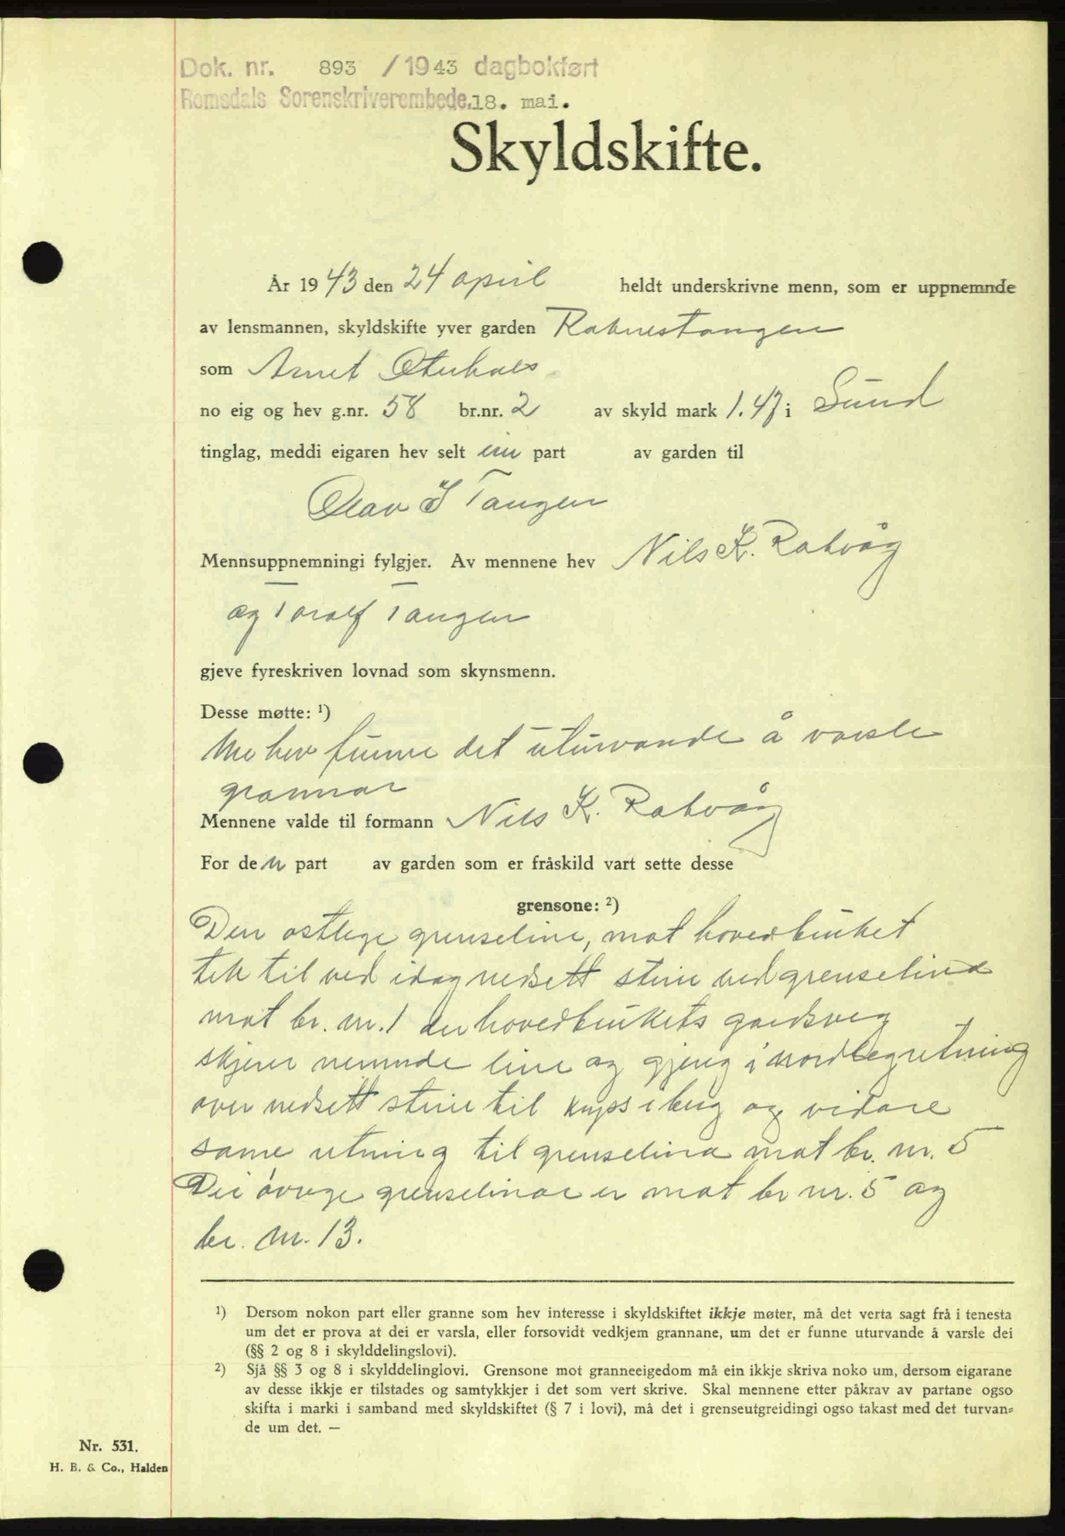 Dok. nr. 893 / 1943 dagbokført
Romsdals Sorenskriverembede. 18. mai.
Skyldskifte.
År 1943 den 24 april heldt underskrivne menn, som er uppnemnde
av lensmannen, skyldskifte yver garden Raknestangen
som Arnet Oterhals
no eig og hev g.nr. 58 br.nr. 2 av skyld mark 1.47 i Sund
tinglag, meddi eigaren hev selt ein part av garden til
Olav J Tangen
Mennsuppnemningi fylgjer. Av mennene hev Nils K. Rakvåg
og Toralf Tangen
gjeve fyreskriven lovnad som skynsmenn.
Desse møtte: ¹)
Me hev funne det uturvande å varsle
grannar
Mennene valde til formann Nils K. Rakvåg
For den part av garden som er fråskild vart sette desse
grensone: ²)
Den østlege grenselina, mot hovedbruket
tek til ved idag nedsett stein ved grenselina
mot br. nr. 1 der hovedbrukets gardsveg
skjerer nemnde line og gjeng i nordleg retning
over nedsett stein til kryss i berg og vidare
same retning til grenselina mot br. nr. 5
Dei øvrige grenselinar er mot br nr. 5 og
br. nr. 13.
¹) Dersom nokon part eller granne som hev interesse i skyldskiftet ikkje møter, må det verta sagt frå i tenesta
um det er prova at dei er varsla, eller forsovidt vedkjem grannane, um det er funne uturvande å varsle dei
(§§ 2 og 8 i skylddelingslovi).
²) Sjå §§ 3 og 8 i skylddelinglovi. Grensone mot granneeigedom må ein ikkje skriva noko um, dersom eigarane
av desse ikkje er tilstades og samtykkjer i det som vert skrive. Skal mennene etter påkrav av partane ogso
skifta i marki i samband med skyldskiftet (§ 7 i lovi), må det i grenseutgreidingi ogso takast med det turvan=
de um det. —
Nr. 531.
H. B. & Co., Halden